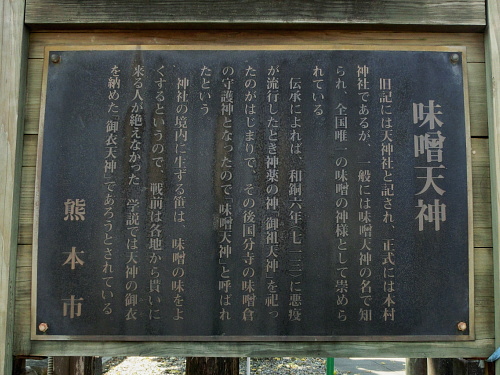 味噌天神
旧記には天神社と記され、正式には本村
神社であるが、一般には味噌天神の名で知
られ、全国唯一の味噌の神様として崇めら
れている。
伝承によれば、和銅六年(七一三)に悪疫
が流行したとき神薬の神「御祖天神」を祀っ
たのがはじまりで、その後国分寺の味噌倉
の守護神となったので「味噌天神」と呼ばれ
たという
神社の境内に生ずる笹は、味噌の味をよ
くするというので、戦前は各地から貰いに
来る人が絶えなかった。学説では天神の御衣
を納めた「御衣天神」であろうとされている
熊本市